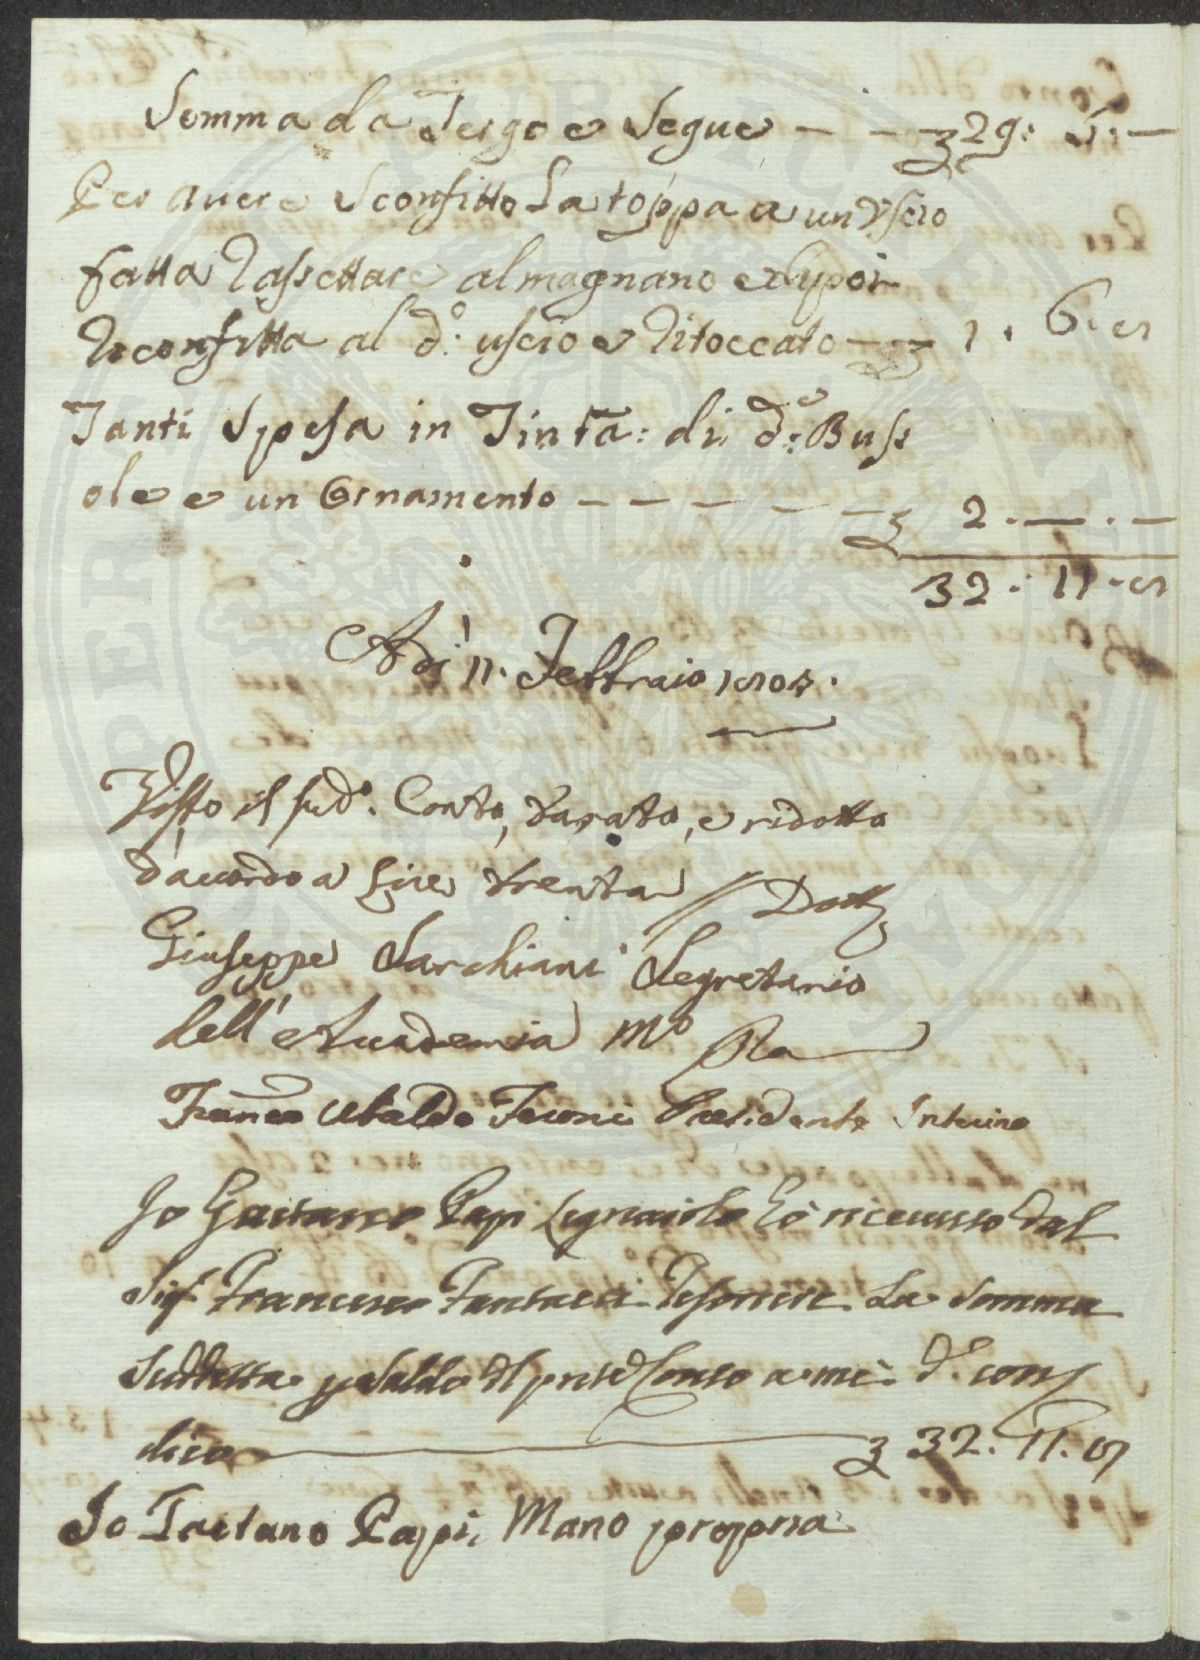 Somma da Tergo e Segue — — — £ 29: 5: —
Per avere Sconfitto La toppa a un Vscio
fatta Rassettare al magnano e Dipoi
Riconfitta al d.o uscio e Ritoccato — £ 1 . 6. 8
Tanti Spesa in Tinta: di d.e Buss
ole e un Ornamento — — — — — £ 2 . — . —
32 . 11 . 8
Adi 11. Febbraio 1805.
Visto il sud.o Conto, tarato, e ridotto
d'accordo a Lire trenta // Dott.
Giuseppe Sarchiani Segretario
dell' Accademia M.o Pa
Franco Ubaldo Feroni Presidente Interino
Io Gaetano Papi Legnaiolo hò ricevuto dal
Sig.r Francesco Tesoriere La Somma
Suddetta p Saldo del pnte Conto a me d.o cont
dico £ 32. 11. 8
Io Gaetano Papi, Mano propria